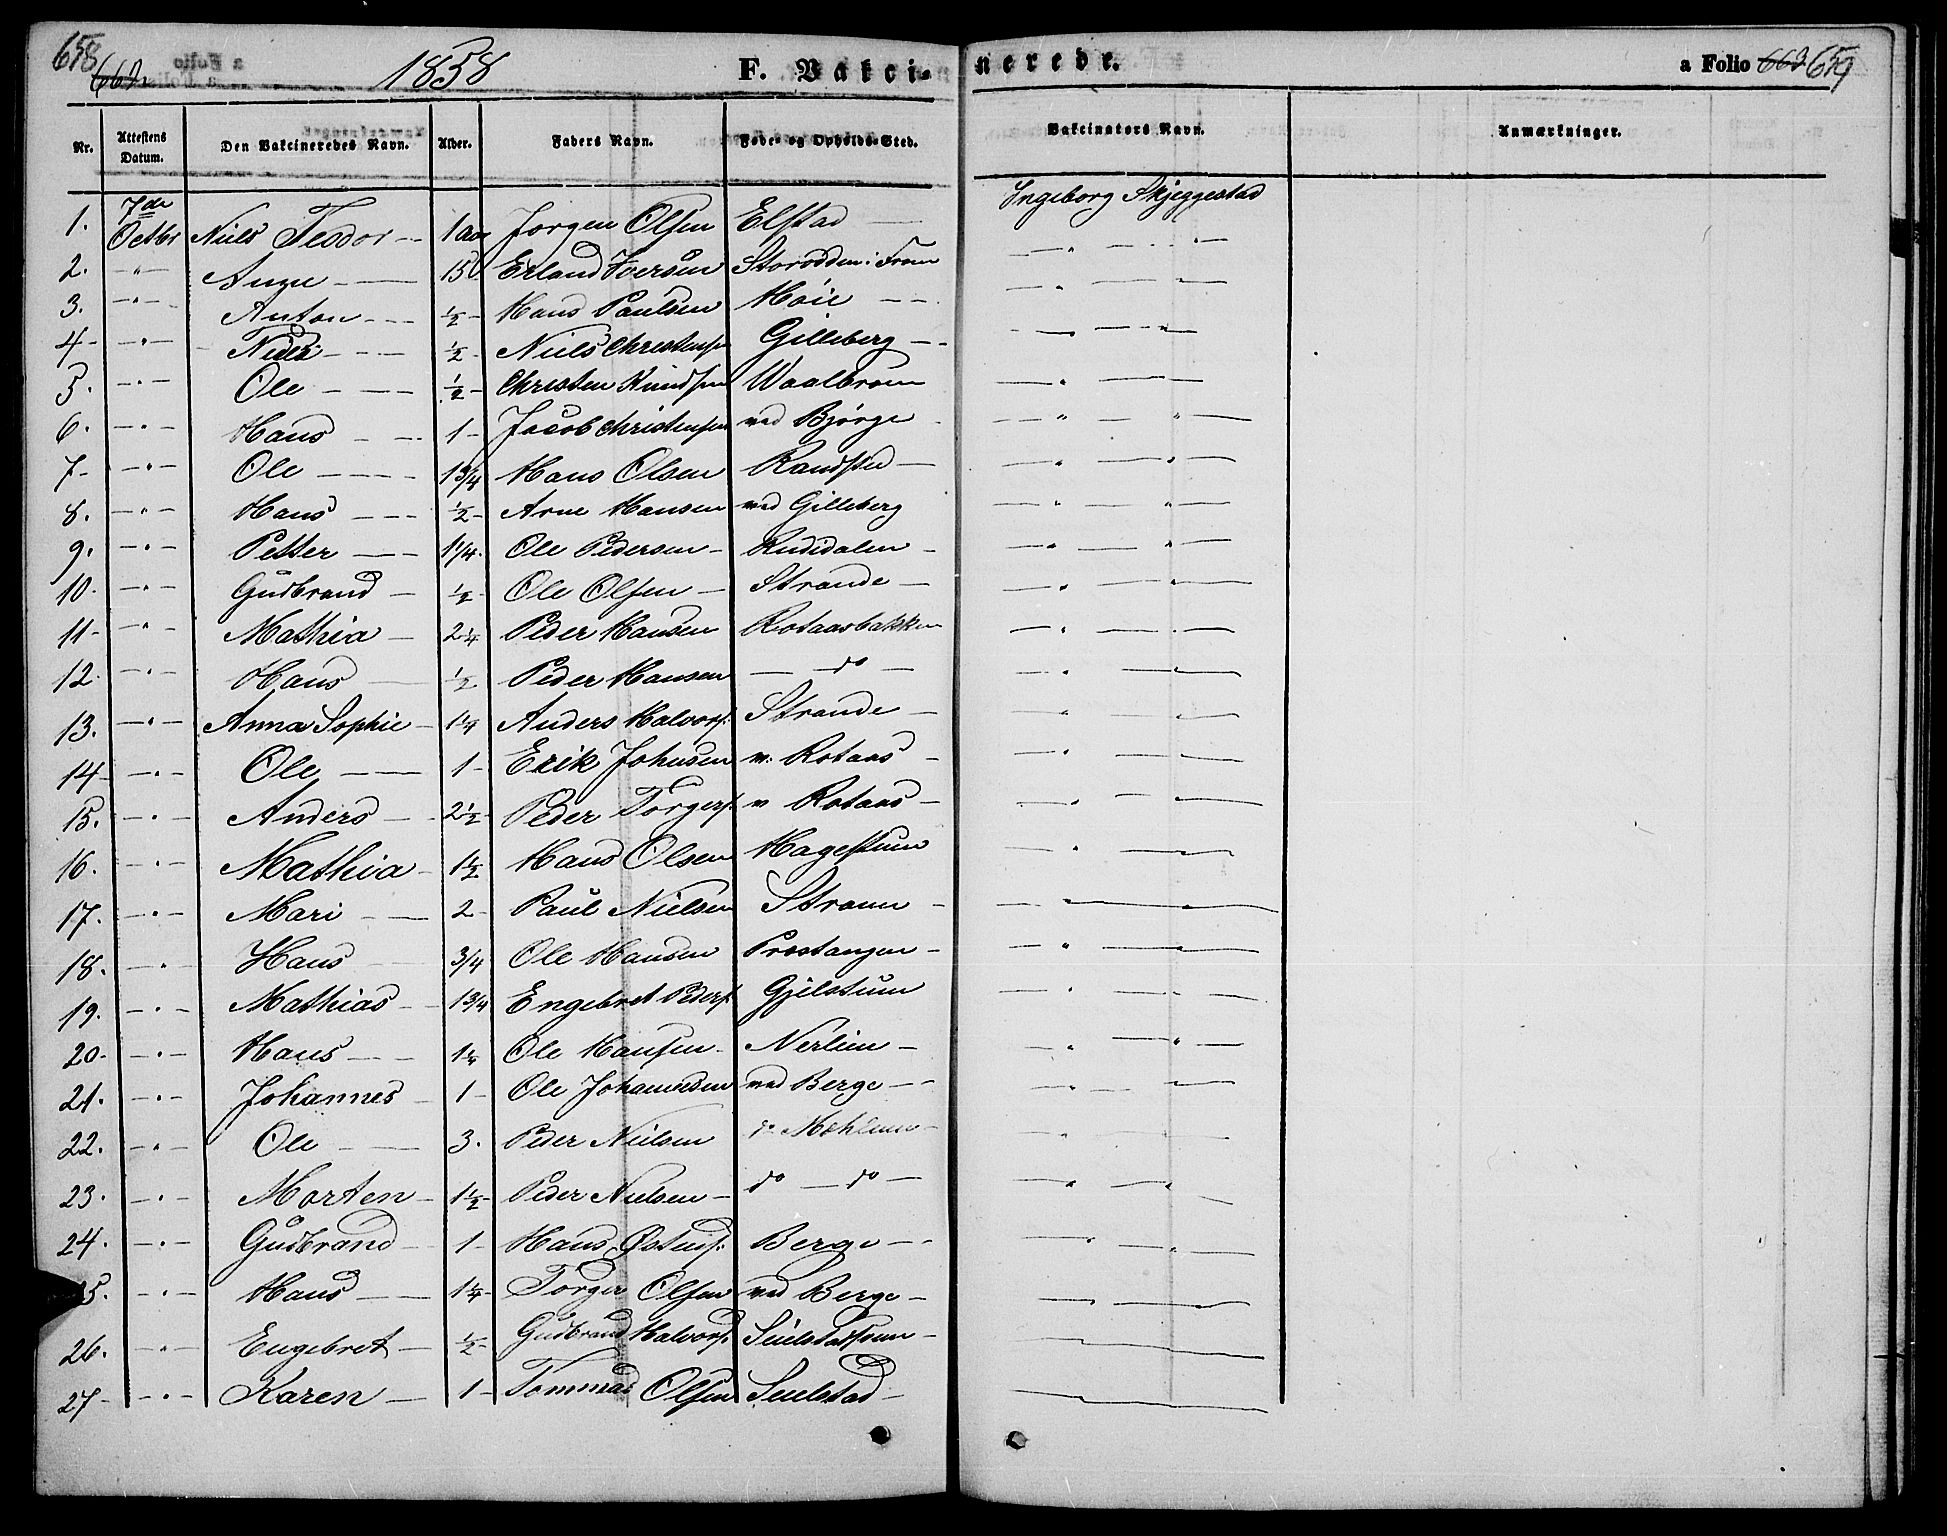 658 1858 F. Vakci-nerede. a Folio 663 659
Nr. Attestens Datum. Den Vakcineredes Navn. Alder. Faders Navn. Føde- og Opholds-Sted. Vakcinators Navn. Anmærkninger.
1. 7de Octbr Niels Teodor 1 aar Jørgen Olsen Elstad Ingeborg Skjeggestad
2. " Erland Iversen " "
3. " Anton ½ Hans Paulsen Høie " "
4 " ½ Niels Christensen Gilleberg " "
5. " Ole ½ Christen Knudsen "
6. " Hans 1 Jacob Christensen ved Bjørge " "
7 " Ole 1¾ Hans Olsen Randsted " "
8. " Hans ½ Arne Hansen ved Gilleberg " "
9. " Petter 1¼ Ole Pedersen Rudidalen " "
10. " Gudbrand ½ Ole Olsen Strande " "
11 " Mathia 2¼ Peder Hansen Rotaasbakken "
12 " Hans ½ Peder Hansen do "
13. " Anna Sophie 1¼ Anders Halvors. Strande "
14 " Ole 1 Erik Johnsen v. Rotaas "
15. " Anders 2½ Peder Torgers. v Rotaas "
16. " Mathia 1½ Hans Olsen Hagestuen "
17. " Mari 2 Paul Nielsen
18. " Hans ¾ Ole Hansen Prestangen "
19. " Mathias 1¾ Engebret Peders. Gjilstuen "
20 " Hans 1¼ Ole Hansen Nerlien " "
21. " Johannes 1 Ole Johannesen ved Berge "
22. " Ole 3. Peder Nielsen do Mæhlum "
23. " Morten 1½ Peder Nielsen do do " "
24. " Gudbrand 1 Hans Østens. Berge
25. " Hans 1¼ Torger Olsen ved Berge
26. " Engebret ½ Gudbrand Halvors.
27 " Karen 1 Tommas Olsen Sulestad